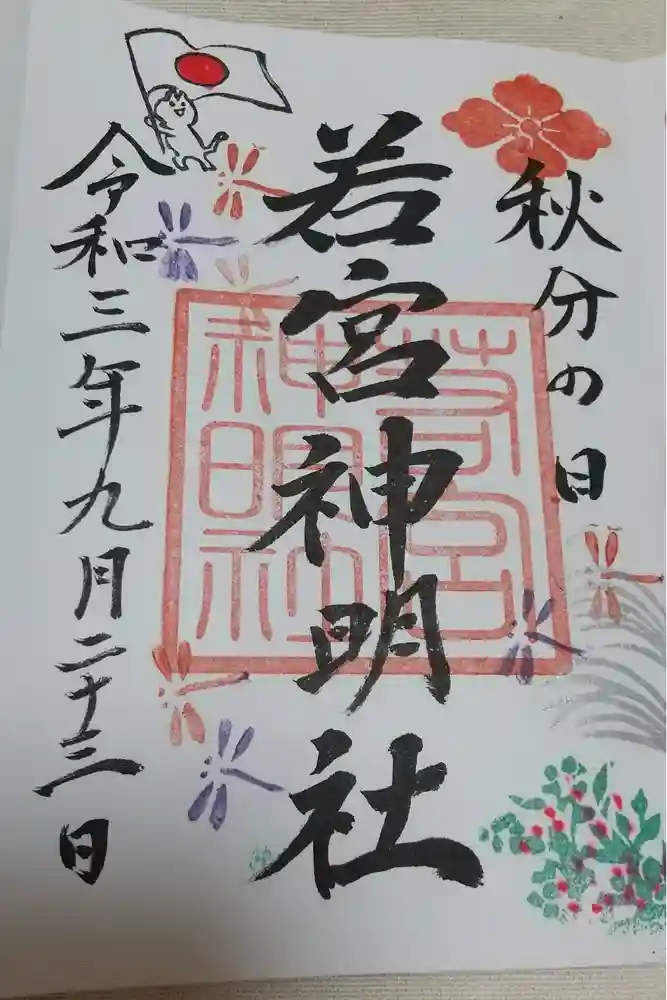 秋分の日
若宮神明社
令和三年九月二十三日
若宮
神明社